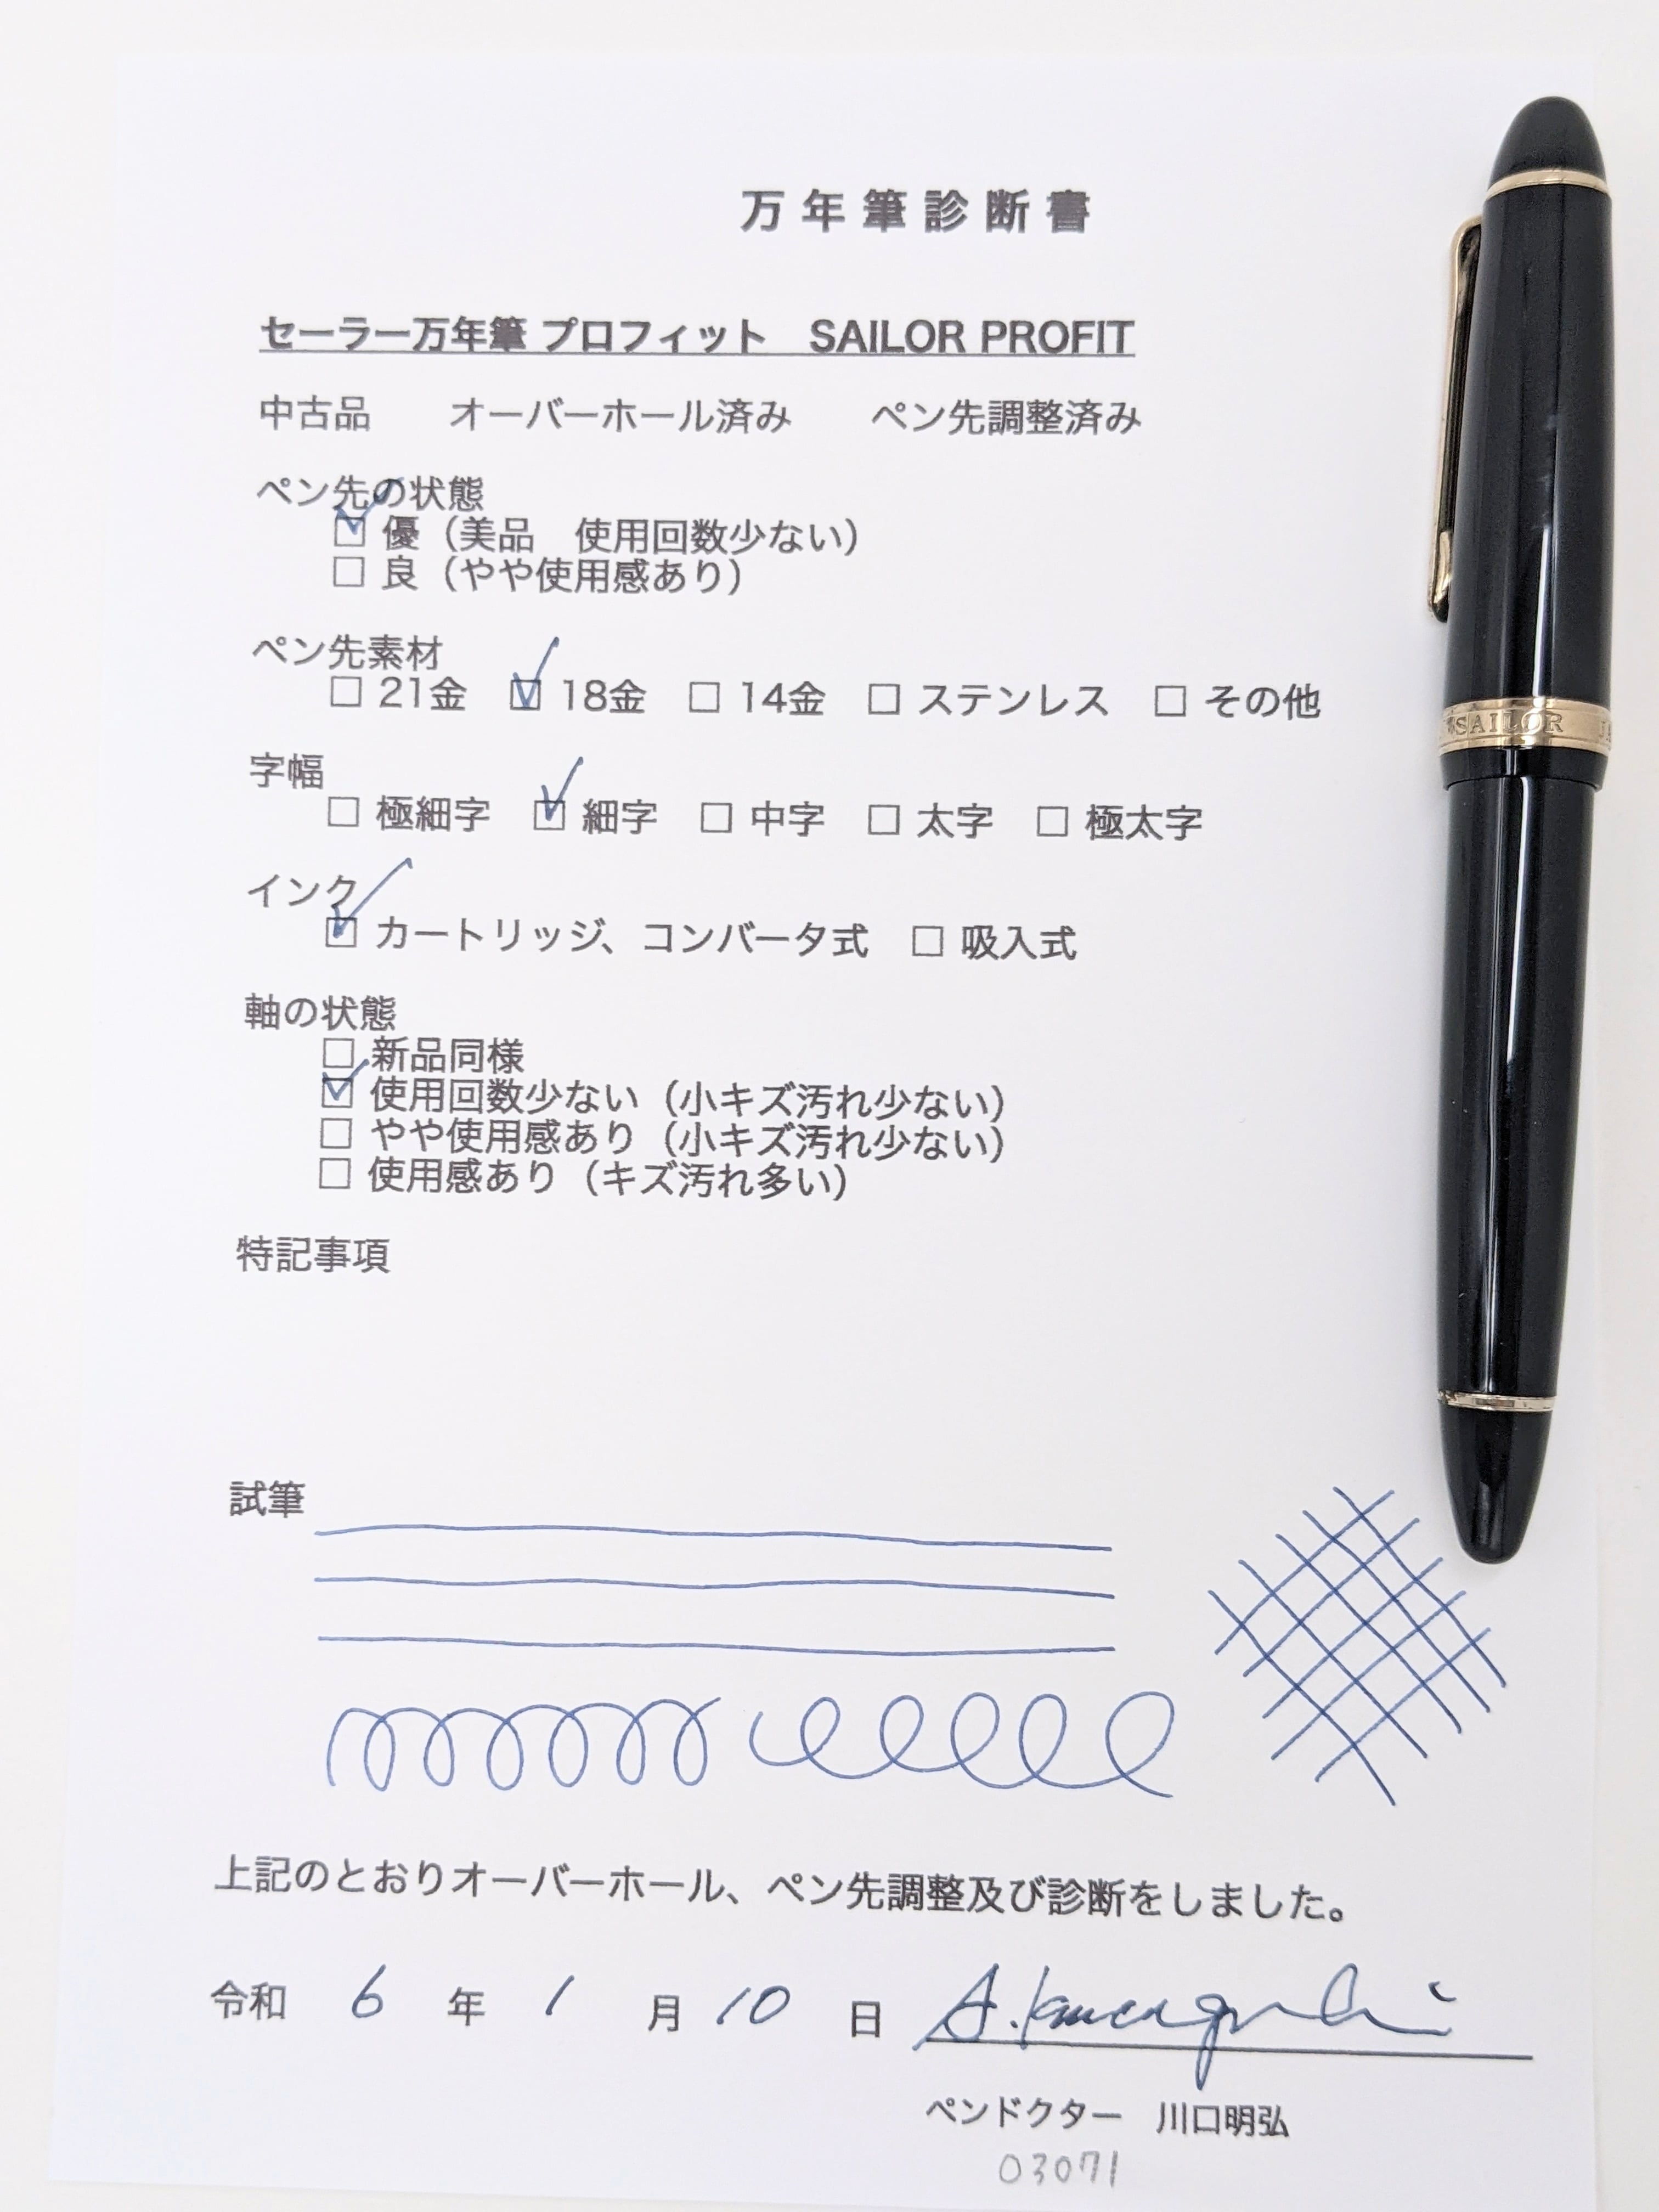 万年筆診断書
セーラー万年筆 プロフィット　SAILOR PROFIT
中古品　　オーバーホール済み　　ペン先調整済み
ペン先の状態
☑ 優（美品　使用回数少ない）
☐ 良（やや使用感あり）
ペン先素材
☐ 21金　☑ 18金　☐ 14金　☐ ステンレス　☐ その他
字幅
☐ 極細字　☑ 細字　☐ 中字　☐ 太字　☐ 極太字
インク
☑ カートリッジ、コンバータ式　☐ 吸入式
軸の状態
☐ 新品同様
☑ 使用回数少ない（小キズ汚れ少ない）
☐ やや使用感あり（小キズ汚れ少ない）
☐ 使用感あり（キズ汚れ多い）
特記事項
試筆
上記のとおりオーバーホール、ペン先調整及び診断をしました。
令和 6 年 1 月 10 日 A. Kawaguchi
ペンドクター　川口明弘
03071
SAILOR